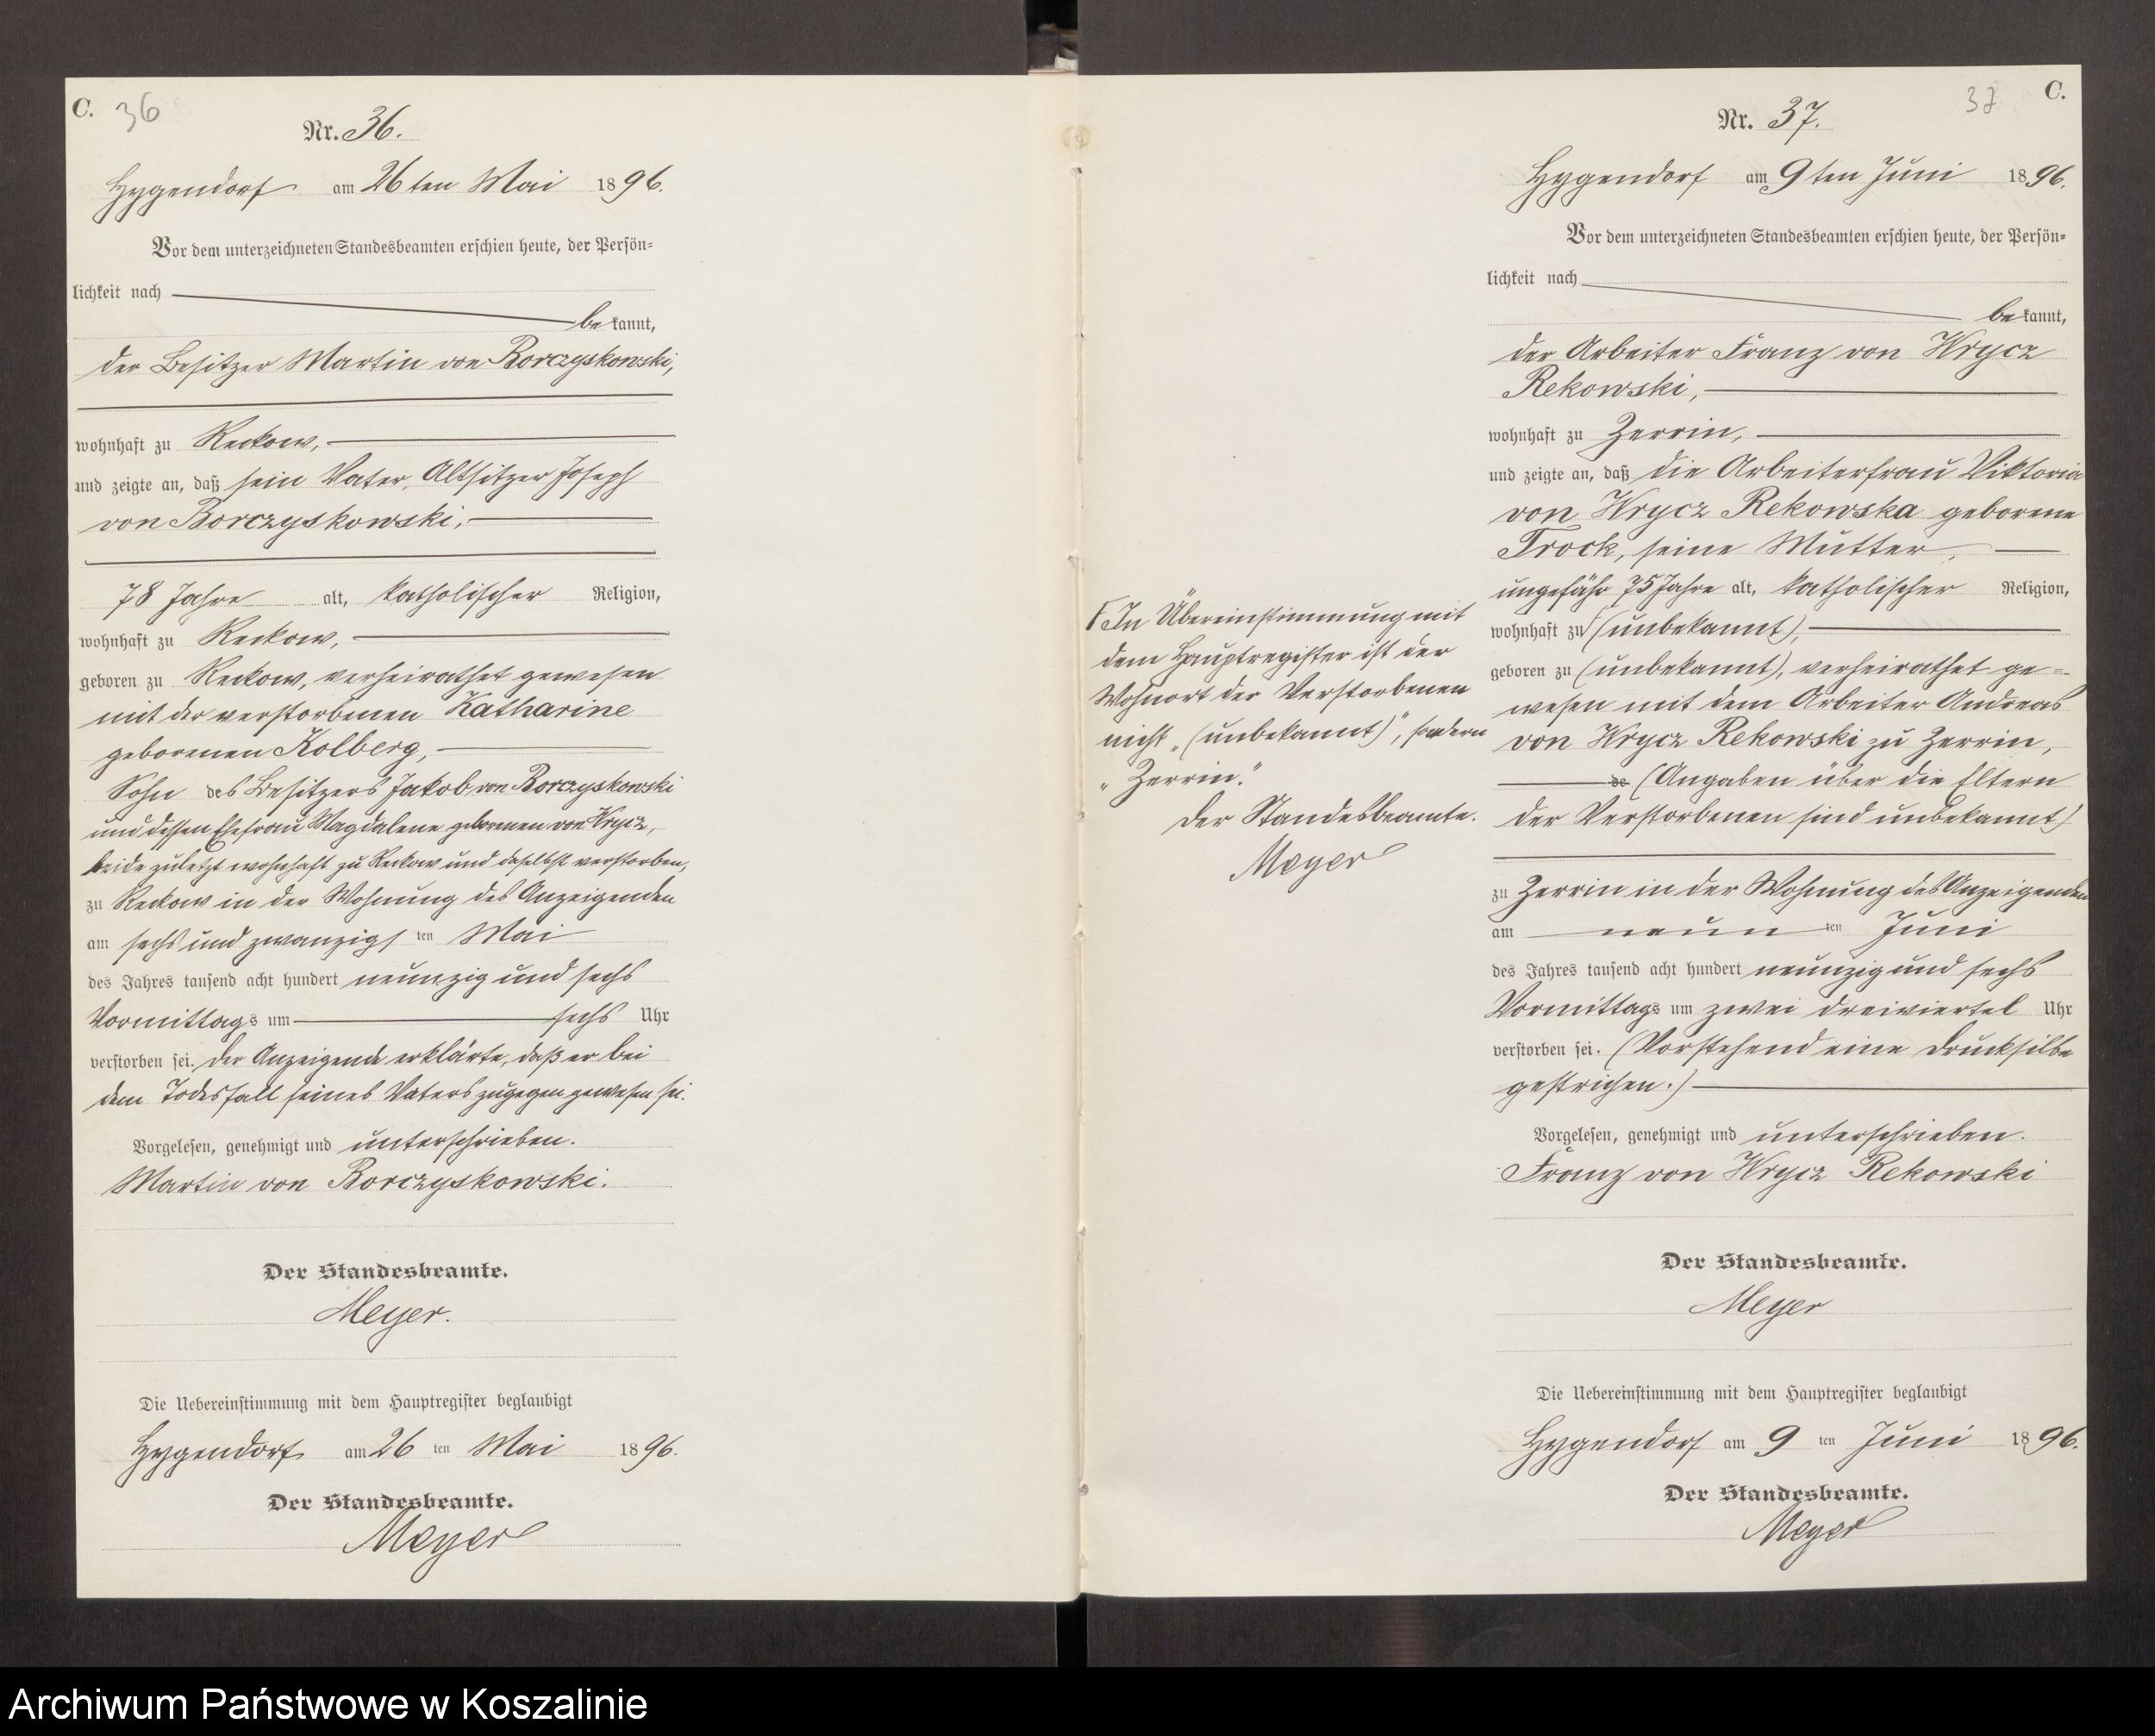 C. 36
Nr. 36.
Hygendorf am 26ten Mai 1896.
Vor dem unterzeichneten Standesbeamten erschien heute, der Persön=
lichkeit nach
bekannt,
der Besitzer Martin von Borczyskowski,
wohnhaft zu Reckow,
und zeigte an, daß sein Vater, Altsitzer Joseph
von Borczyskowski,
78 Jahre alt, katholischer Religion,
wohnhaft zu Reckow,
geboren zu Reckow, verheirathet gewesen
mit der verstorbenen Katharine
geborenen Kolberg,
Sohn des Besitzers Jakob von Borczyskowski
und dessen Ehefrau Magdalene geborenen von Wrycz,
beide zuletzt wohnhaft zu Reckow und daselbst verstorben,
zu Reckow in der Wohnung des Anzeigenden
am sechs und zwanzigsten Mai
des Jahres tausend acht hundert neunzig und sechs
Vormittags um sechs Uhr
verstorben sei. Der Anzeigende erklärte, daß er bei
dem Todesfall seines Vaters zugegen gewesen sei.
Vorgelesen, genehmigt und unterschrieben.
Martin von Borczyskowski.
Der Standesbeamte.
Meyer.
Die Uebereinstimmung mit dem Hauptregister beglaubigt
Hygendorf am 26ten Mai 1896.
Der Standesbeamte.
Meyer
37 C.
Nr. 37.
Hygendorf am 9ten Juni 1896.
Vor dem unterzeichneten Standesbeamten erschien heute, der Persön=
lichkeit nach
bekannt,
der Arbeiter Franz von Wrycz
Rekowski,
wohnhaft zu Zerrin,
und zeigte an, daß die Arbeiterfrau Viktoria
von Wrycz Rekowska geborene
Trock, seine Mutter,
ungefähr 75 Jahre alt, katholischer Religion,
wohnhaft zu (unbekannt),
geboren zu (unbekannt), verheirathet ge=
wesen mit dem Arbeiter Andreas
von Wrycz Rekowski zu Zerrin,
de (Angaben über die Eltern
der Verstorbenen sind unbekannt)
zu Zerrin in der Wohnung des Anzeigenden
am neunten Juni
des Jahres tausend acht hundert neunzig und sechs
Vormittags um zwei dreiviertel Uhr
verstorben sei. (Vorstehend eine Drucksilbe
gestrichen.)
Vorgelesen, genehmigt und unterschrieben.
Franz von Wrycz Rekowski
Der Standesbeamte.
Meyer
Die Uebereinstimmung mit dem Hauptregister beglaubigt
Hygendorf am 9ten Juni 1896.
Der Standesbeamte.
Meyer
In Übereinstimmung mit
dem Hauptregister ist der
Wohnort der Verstorbenen
nicht „(unbekannt)", sondern
„Zerrin".
Der Standesbeamte.
Meyer
Archiwum Państwowe w Koszalinie